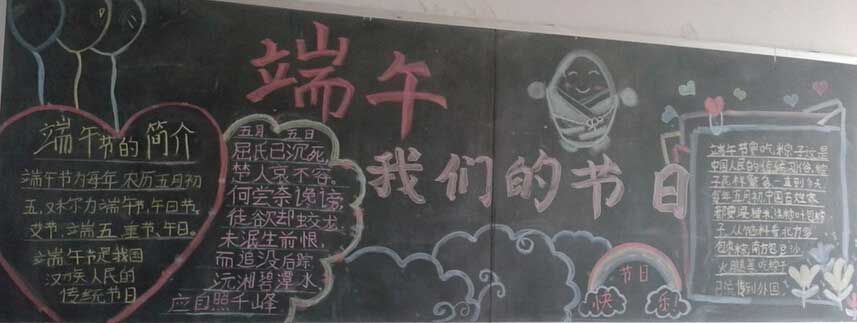 端午
我们的节日
端午节的简介
端午节为每年农历五月初
五,又称为端午节,午日节,
艾节,端五,重节,午日。
端午节是我国
汉族人民的
传统节日
五月五日
屈氏已沉死
楚人哀不容。
何尝奈谗谤
徒欲却蛟龙
未泯生前恨,
而追没后踪
沅湘碧潭水
应自照千峰
节日
快乐
端午节 吃粽子,这是
中国人民的传统习俗,粽
一直到今天
每年五月初,中国百姓家
都要浸糯米,洗粽叶,包粽
子,从馅料看,北方多
包枣粽,南方包豆沙
火腿